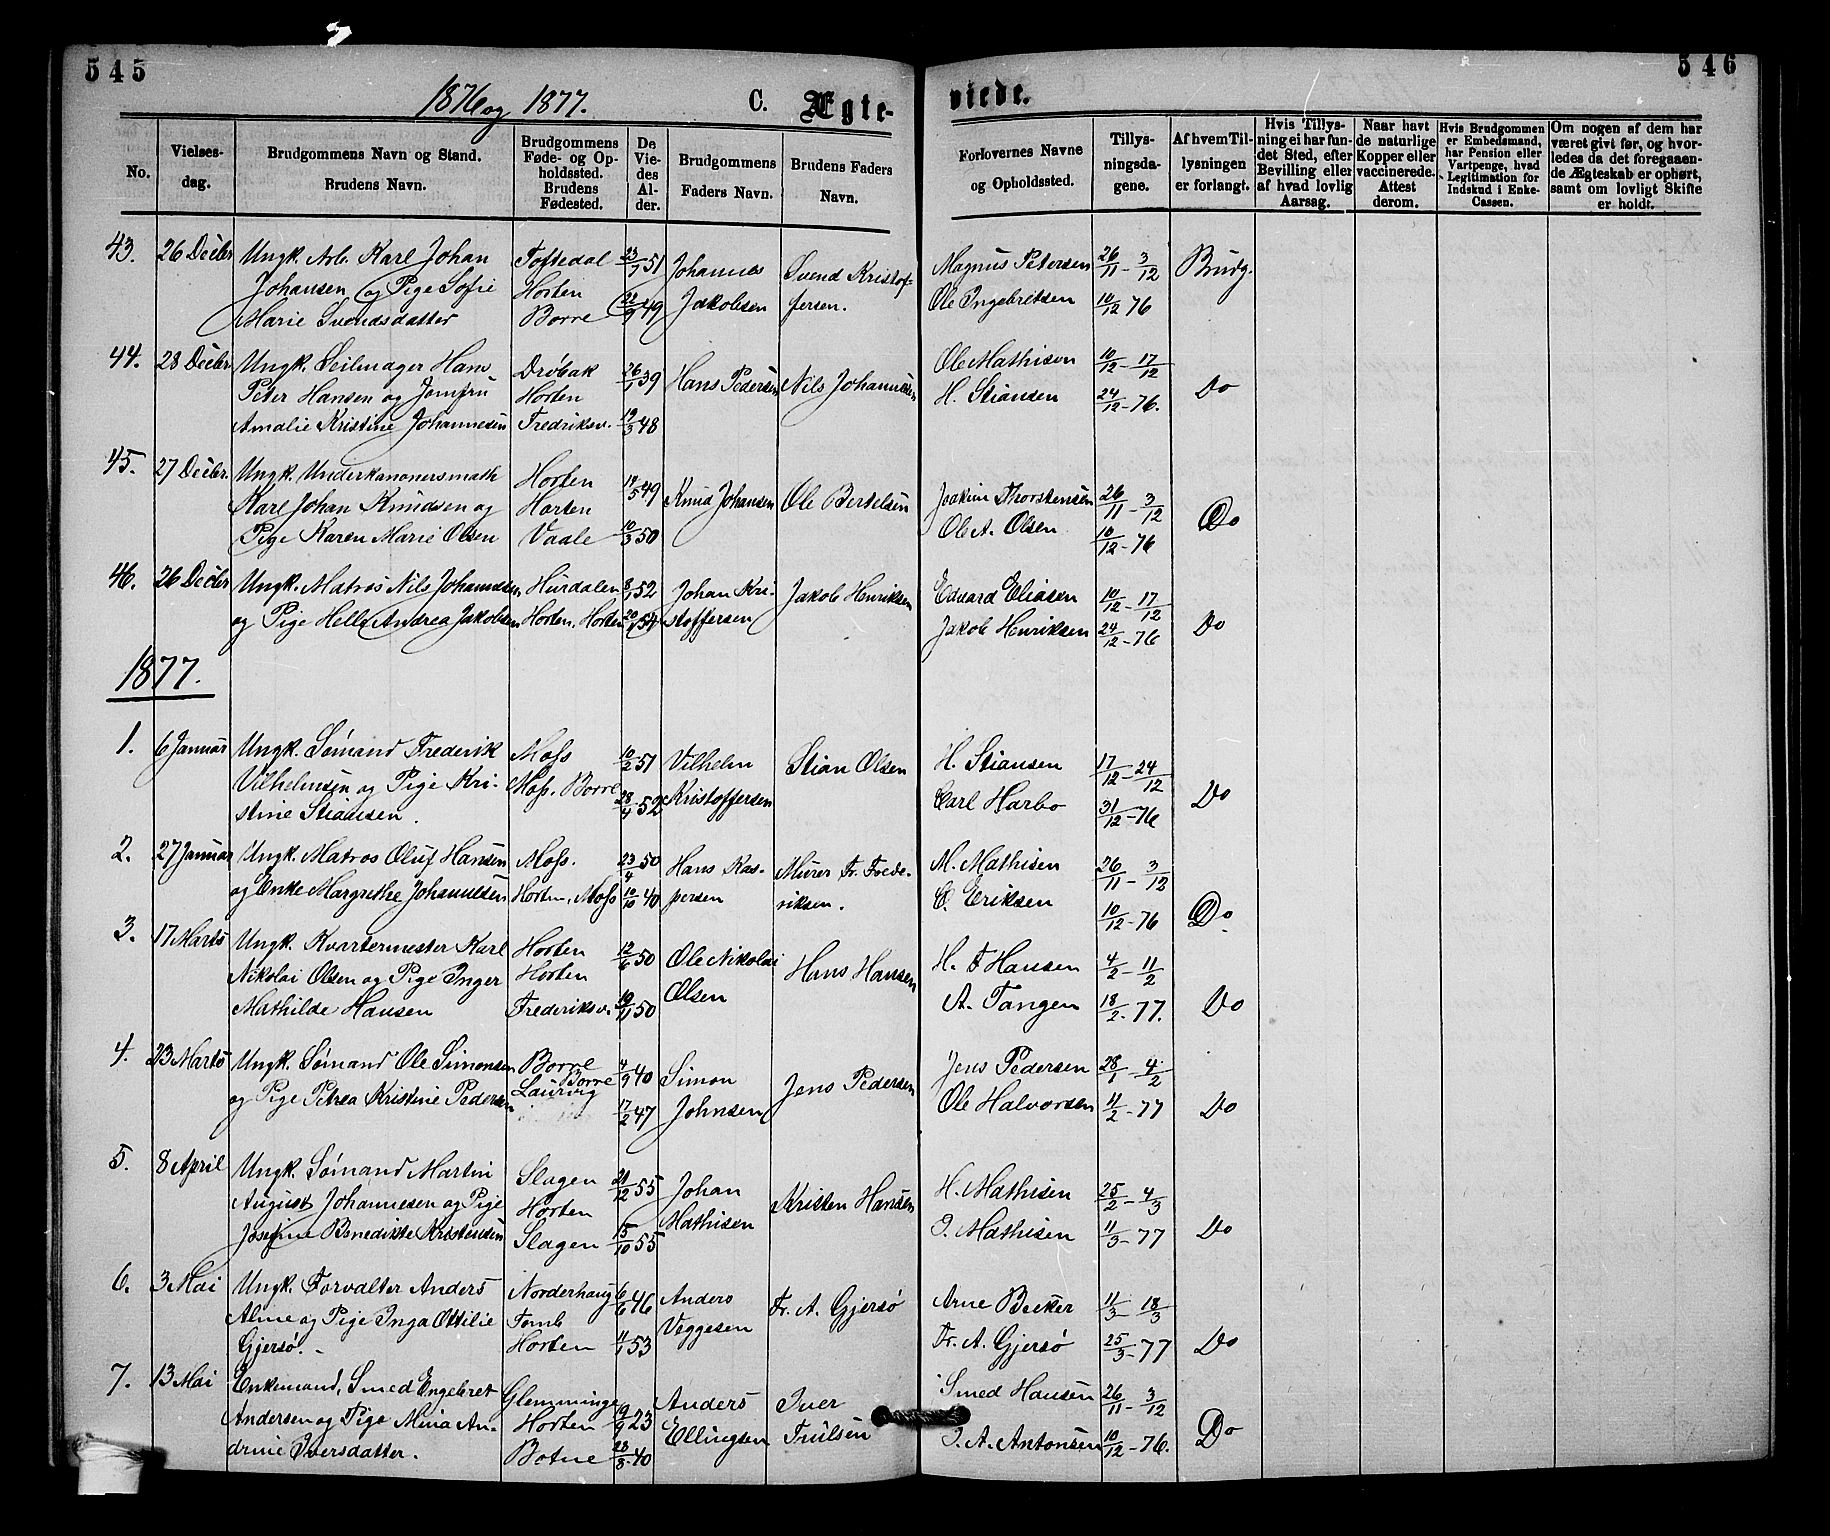 545
546
1876 og 1877.
C. Ægte-
viede.
No.
Vielses-
dag.
Brudgommens Navn og Stand.
Brudens Navn.
Brudgommens
Føde- og Op-
holdssted.
Brudens
Fødested.
De
Vie-
des
Al-
der.
Brudgommens
Faders Navn.
Brudens Faders
Navn.
Forlovernes Navne
og Opholdssted.
Tillys-
ningsda-
gene.
Af hvem Til-
lysningen
er forlangt.
Hvis Tillys-
ning ei har fun-
det Sted, efter
Bevilling eller
af hvad lovlig
Aarsag.
Naar havt
de naturlige
Kopper eller
vaccinerede.
Attest
derom.
Hvis Brudgommen
er Embedsmand,
har Pension eller
Vartpenge, hvad
Legitimation for
Indskud i Enke-
Cassen.
Om nogen af dem har
været givt før, og hvor-
ledes da det foregaaen-
de Ægteskab er ophørt,
samt om lovligt Skifte
er holdt.
43. 26 Decbr Ungk. Arb. Karl Johan Toftedal 23/7 51 Johannes Svend Kristof- Magnus Petersen 26/11 - 3/12 Brudg.
Johansen og Pige Sofie Horten
Marie Svendsdatter Borre 22/9 49 Jakobsen fersen. Ole Ingebritsen 10/12 76
44. 28 Decbr Ungk. Seilmager Hans Drøbak 26/1 39 Hans Pedersen Nils Johannesen Ole Mathisen 10/12 - 17/12 Do
Peter Hansen og Jomfru Horten H. Stiansen 24/12 - 76.
Amalie Kristine Johannesen Fredriksv. 19/3 48
45. 27 Decbr. Ungk. Underkanonersmath Horten 14/5 49 Knud Johansen Ole Bertelsen Joakim Thorstensen 26/11 - 3/12 Do
Karl Johan Knudsen og Horten Ole A. Olsen
Pige Karen Marie Olsen Vaale 10/3 50 10/12 - 76
46. 26 Decbr Ungk. Matros Nils Johannesen Hurdalen 8/1 52 Johan Kri- Jakob Henriksen Eduard Eliasen 10/12 - 17/12 Do
og Pige Helle Andrea Jakobsen Horten, Horten 20/1 54 stoffersen Jakob Henriksen 24/12 - 76
1877.
1. 6 Januar Ungk. Sømand Frederik Moss 10/2 51 Vilhelm Stian Olsen H. Stiansen 17/12 - 24/12 Do
Vilhelmsen og Pige Kri- Moss. Borre
stine Stiansen. 28/4 52 Kristoffersen Carl Harbo 31/12 - 76
2. 27 Januar Ungk. Matros Oluf Hansen Moss. 23/4 50 Hans Kas- Murer Fr. Frede- M. Mathisen 26/11 - 3/12 Do.
og Enke Margrethe Johannesen Horten, Moss 10/10 40 persen riksen. C. Eriksen 10/12 - 76
3. 17 Marts Ungk. Kvartermester Karl Horten 12/6 50 Ole Nikolai Hans Hansen H. F Hansen 4/2 - 11/2 Do
Nikolai Olsen og Pige Inger Horten Olsen A. Tangen 18/2 - 77.
Mathilde Hansen Frederiksv. 19/11 50
4. 23 Marts Ungk. Sømand Ole Simonsen Borre 4/9 40 Simon Jens Pedersen Jens Pedersen 28/1 - 4/2 Do
og Pige Petrea Kristine Pedersen Borre Laurvig 17/2 47 Johnsen Ole Halvorsen 11/2 - 77
5. 8 April Ungk. Sømand Martin Slagen 21/12 55 Johan Kristen Hansen H. Mathisen 25/2 - 4/3 Do
August Johannesen og Pige Horten Mathisen
Josefine Benedikte Kristensen Slagen 15/10 55 I. Mathisen 11/3 - 77
6. 3 Mai Ungk. Forvalter Anders Norderhaug 6/6 46 Anders Fr. A. Gjersø Arne Becker 11/3 18/3 Do
Alme og Pige Inga Ottilie Tomb Veggesen
Gjersø. Horten 11/1 53 Fr. A. Gjersø 25/3 - 77
7. 13 Mai Enkemand, Smed Engebret Glemminge 19/9 23 Anders Iver Smed Hansen 26/11 - 3/12 Do
Andersen og Pige Mina An- Horten Ellingsen Truilsen
drine Iversdatter. Botne 23/8 40 I. A. Antonsen 10/12 - 76.